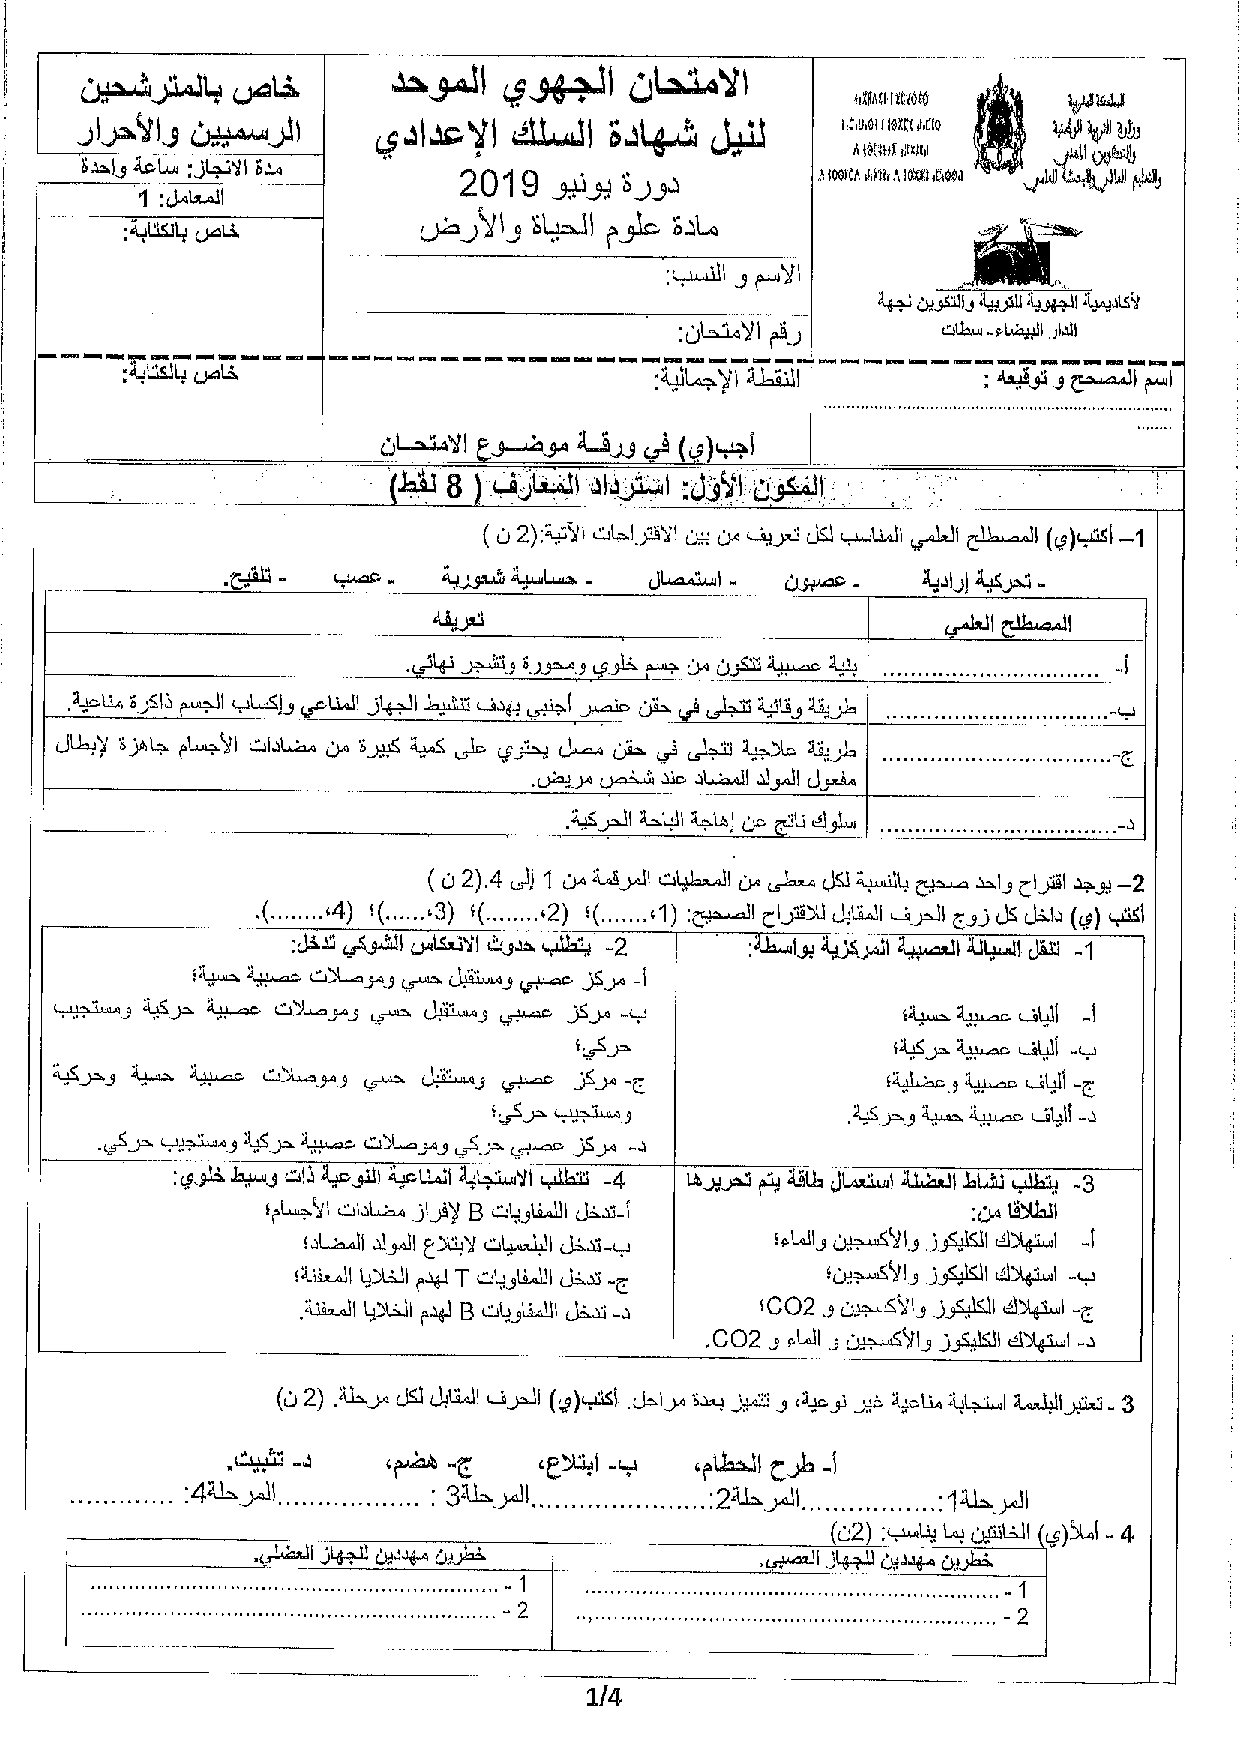 المملكة المغربية
وزارة التربية الوطنية
والتكوين المهني
والتعليم العالي والبحث العلمي
الأكاديمية الجهوية للتربية والتكوين لجهة
الدار البيضاء - سطات
الامتحان الجهوي الموحد
لنيل شهادة السلك الإعدادي
دورة يونيو 2019
مادة علوم الحياة والأرض
الاسم و النسب:
رقم الامتحان:
خاص بالمترشحين
الرسميين والأحرار
مدة الانجاز: ساعة واحدة
المعامل: 1
خاص بالكتابة:
اسم المصحح و توقيعه :
النقطة الإجمالية:
خاص بالكتابة:
أجب(ي) في ورقة موضوع الامتحان
المكون الأول: استرداد المعارف ( 8 نقط)
1– أكتب(ي) المصطلح العلمي المناسب لكل تعريف من بين الاقتراحات الآتية:(2 ن )
- تحركية إرادية - عصبون - استمصال - حساسية شعورية - عصب - تلقيح.
المصطلح العلمي تعريفه
أ- .............................. بنية عصبية تتكون من جسم خلوي ومحورة وتشجر نهائي.
ب-.............................. طريقة وقائية تتجلى في حقن عنصر أجنبي بهدف تنشيط الجهاز المناعي وإكساب الجسم ذاكرة مناعية.
ج-.............................. طريقة علاجية تتجلى في حقن مصل يحتوي على كمية كبيرة من مضادات الأجسام جاهزة لإبطال
مفعول المولد المضاد عند شخص مريض.
د-.............................. سلوك ناتج عن إهاجة الباحة الحركية.
2– يوجد اقتراح واحد صحيح بالنسبة لكل معطى من المعطيات المرقمة من 1 إلى 4.(2 ن )
أكتب (ي) داخل كل زوج الحرف المقابل للاقتراح الصحيح: (1،.......)؛ (2،........)؛ (3،......)؛ (4،........).
1- تنقل السيالة العصبية المركزية بواسطة:
أ- ألياف عصبية حسية؛
ب- ألياف عصبية حركية؛
ج- ألياف عصبية وعضلية؛
د- ألياف عصبية حسية وحركية.
2- يتطلب حدوث الانعكاس الشوكي تدخل:
أ- مركز عصبي ومستقبل حسي وموصلات عصبية حسية؛
ب- مركز عصبي ومستقبل حسي وموصلات عصبية حركية ومستجيب
حركي؛
ج- مركز عصبي ومستقبل حسي وموصلات عصبية حسية وحركية
ومستجيب حركي؛
د- مركز عصبي حركي وموصلات عصبية حركية ومستجيب حركي.
3- يتطلب نشاط العضلة استعمال طاقة يتم تحريرها
انطلاقا من:
أ- استهلاك الكليكوز والأكسجين والماء؛
ب- استهلاك الكليكوز والأكسجين؛
ج- استهلاك الكليكوز والأكسجين و CO2؛
د- استهلاك الكليكوز والأكسجين و الماء و CO2.
4- تتطلب الاستجابة المناعية النوعية ذات وسيط خلوي:
أ-تدخل اللمفاويات B لإفراز مضادات الأجسام؛
ب-تدخل البلعميات لابتلاع المولد المضاد؛
ج- تدخل اللمفاويات T لهدم الخلايا المعفنة؛
د- تدخل اللمفاويات B لهدم الخلايا المعفنة.
3 - تعتبر البلعمة استجابة مناعية غير نوعية، و تتميز بعدة مراحل. أكتب(ي) الحرف المقابل لكل مرحلة. (2 ن)
أ- طرح الحطام، ب- ابتلاع، ج- هضم، د- تثبيت.
المرحلة1:.................المرحلة2:......................المرحلة3 : ..................المرحلة4: .............
4 - أملأ(ي) الخانتين بما يناسب: (2ن)
خطرين مهددين للجهاز العصبي. خطرين مهددين للجهاز العضلي.
1 - .............................. 1 - ..............................
2 - .............................. 2 - ..............................
1/4